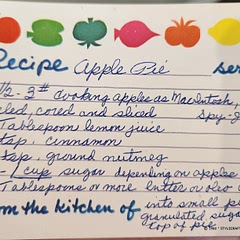 Recipe Apple Pie ser
1/2 - 3# cooking apples as MacIntosh,
led, cored and sliced Spy-
Tablespoon lemon juice
tsp. cinnamon
tsp. ground nutmeg
- 1 cup sugar depending on apples
Tablespoons or more butter or oleo
om the kitchen of into small pi
granulated sugar
top of pie